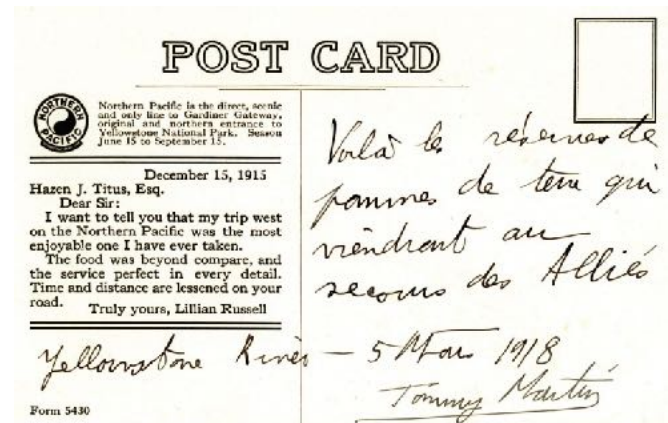 POST CARD
NORTHERN
PACIFIC
Northern Pacific is the direct, scenic
and only line to Gardiner Gateway,
original and northern entrance to
Yellowstone National Park. Season
June 15 to September 15.
December 15, 1915
Hazen J. Titus, Esq.
Dear Sir:
I want to tell you that my trip west
on the Northern Pacific was the most
enjoyable one I have ever taken.
The food was beyond compare, and
the service perfect in every detail.
Time and distance are lessened on your
road.
Truly yours, Lillian Russell
Form 5430
Voilà les réserves de
pommes de terre qui
viendront au
secours des Alliés
Yellowstone River – 5 Mars 1918
Tommy Martin